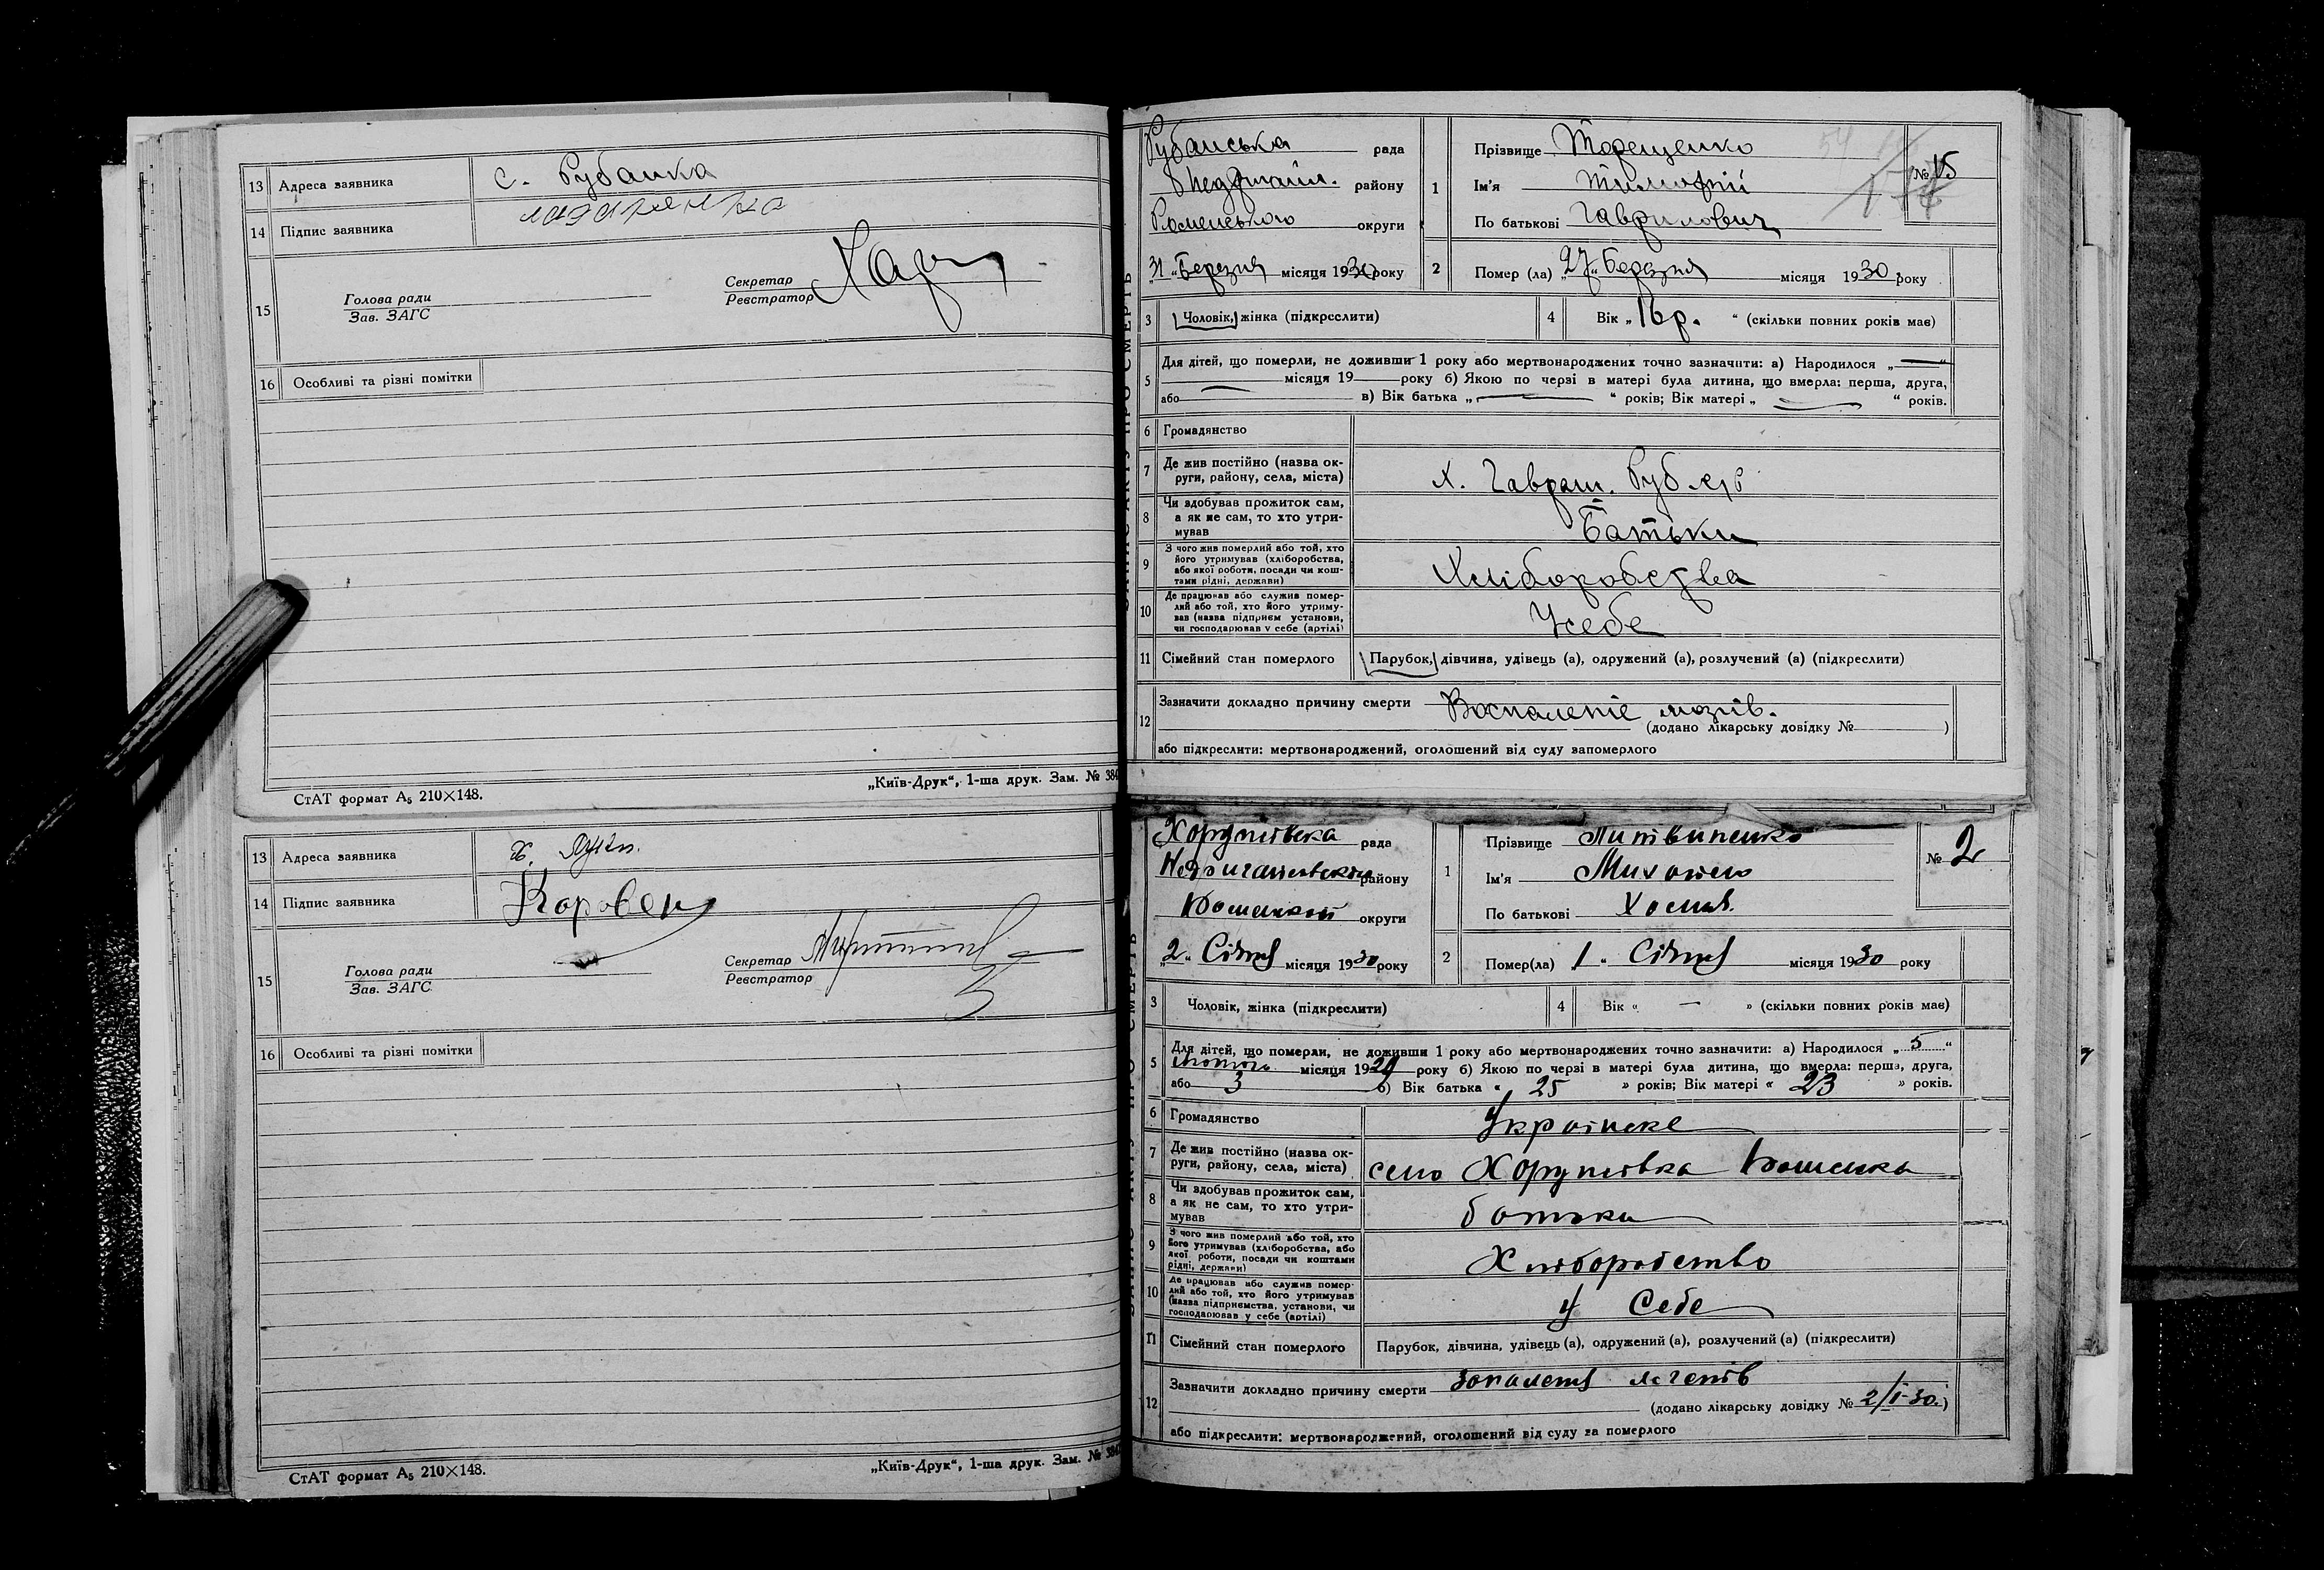 13 Адреса заявника с. Рубанка
14 Підпис заявника
15 Голова ради
Зав. ЗАГС
Секретар
Реєстратор
16 Особливі та різні помітки
„Київ-Друк“, 1-ша друк. Зам. № 384
СтАТ формат А₅ 210×148.
13 Адреса заявника х.
14 Підпис заявника
15 Голова ради
Зав. ЗАГС
Секретар
Реєстратор
16 Особливі та різні помітки
„Київ-Друк“, 1-ша друк. Зам. № 384
СтАТ формат А₅ 210×148.
Рубанська рада
району
Роменського округи
31 „Березня місяця 1930 року
1 Прізвище
Ім'я Тимофій
По батькові Гаврилович
№ 15
2 Помер (ла) „27“ березня місяця 1930 року
3 Чоловік, жінка (підкреслити)
4 Вік „16р. “ (скільки повних років має)
5 Для дітей, що померли, не доживши 1 року або мертвонароджених точно зазначити: а) Народилося „—“
місяця 19 року б) Якою по черзі в матері була дитина, що вмерла: перша, друга,
або в) Вік батька „ “ років; Вік матері „ “ років.
6 Громадянство
7 Де жив постійно (назва ок-
руги, району, села, міста) х.
8 Чи здобував прожиток сам,
а як не сам, то хто утри-
мував Батьки
9 З чого жив померлий або той, хто
його утримував (хліборобства,
або якої роботи, посади чи кош-
тами рідні, держави) Хліборобства
10 Де працював або служив помер-
лий або той, хто його утриму-
вав (назва підприєм установи,
чи господарював у себе (артілі) У себе
11 Сімейний стан померлого Парубок, дівчина, удівець (а), одружений (а), розлучений (а) (підкреслити)
12 Зазначити докладно причину смерти Воспаленіе мозків.
(додано лікарську довідку № )
або підкреслити: мертвонароджений, оголошений від суду запомерлого
Хоружівська рада
Недригайлівського району
округи
„2“ Січня місяця 1930 року
1 Прізвище Литвиненко
Ім'я Михайло
По батькові
№ 2
2 Помер(ла) 1 “ Січня місяця 1930 року
3 Чоловік, жінка (підкреслити)
4 Вік « — » (скільки повних років має)
5 Для дітей, що померли, не доживши 1 року або мертвонароджених точно зазначити: а) Народилося „5“
місяця 1929 року б) Якою по черзі в матері була дитина, що вмерла: перша, друга,
або 3 в) Вік батька « 25 » років; Вік матері « 23 » років.
6 Громадянство Українське
7 Де жив постійно (назва ок-
руги, району, села, міста) село Хоружівка
8 Чи здобував прожиток сам,
а як не сам, то хто утри-
мував батьки
9 З чого жив померлий або той, хто
його утримував (хліборобства, або
якої роботи, посади чи коштами
рідні, держави) Хліборобство
10 Де працював або служив помер-
лий або той, хто його утримував
(назва підприємства, установи, чи
господарював у себе (артілі) у Себе
11 Сімейний стан померлого Парубок, дівчина, удівець (а), одружений (а), розлучений (а) (підкреслити)
12 Зазначити докладно причину смерти запаленя легенів
(додано лікарську довідку № 2/I-30.)
або підкреслити: мертвонароджений, оголошений від суду за померлого